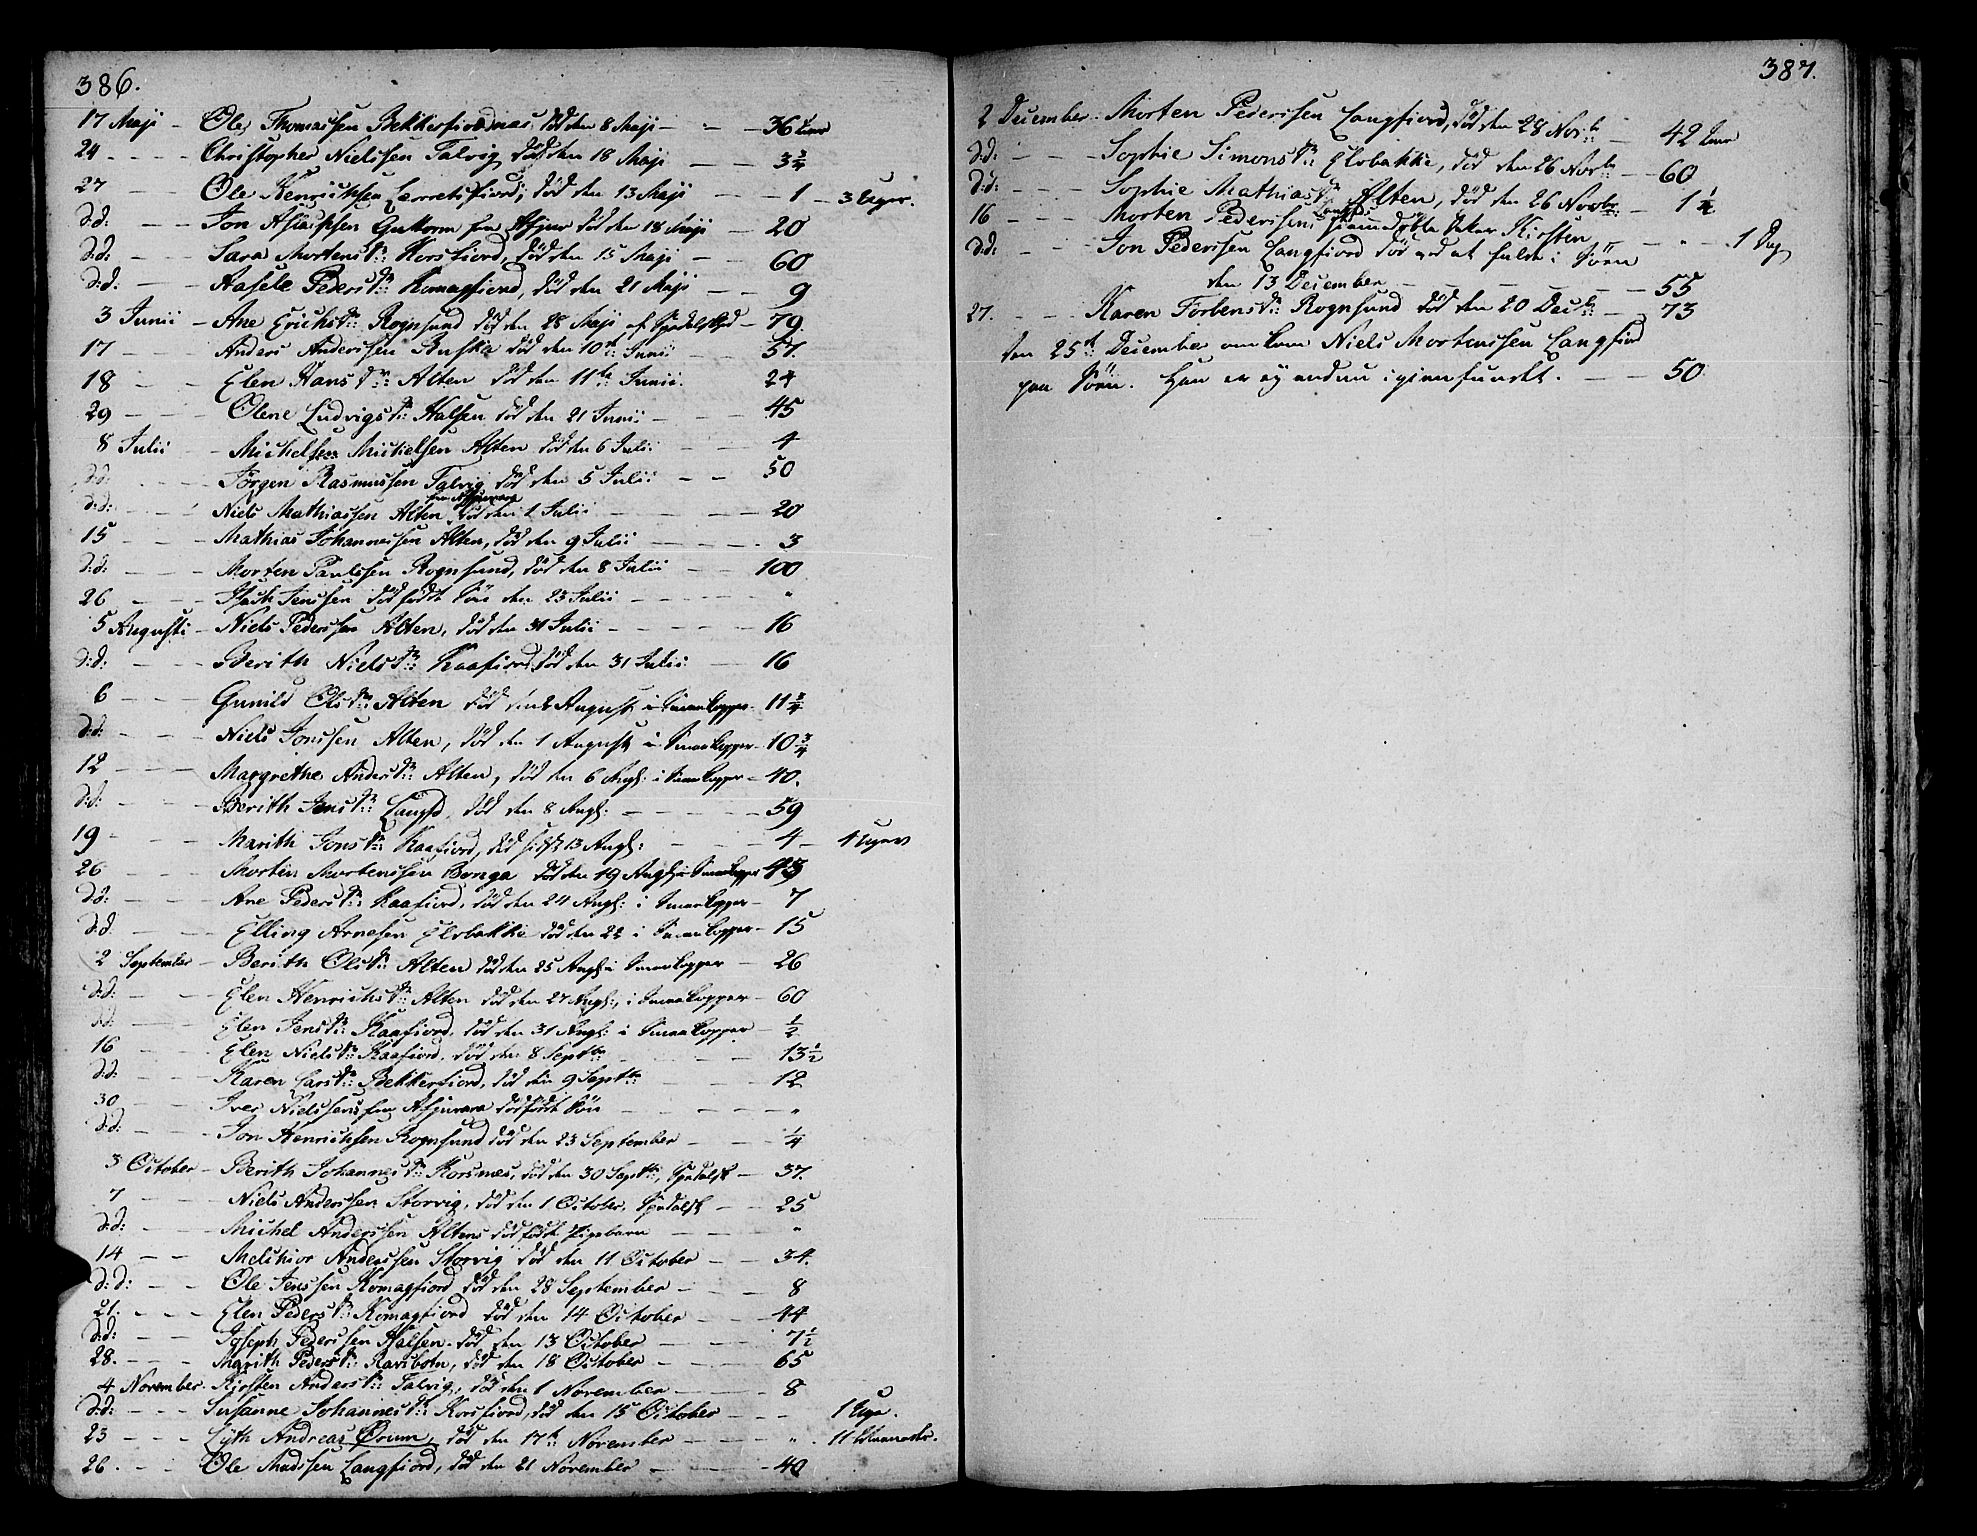 386.
17 Maji – Ole Thomassen Bekkerfiord død den 8 Maji – 36
24 – Christopher Nielssen Talvig død den 18 Maji – 3½
27 – Ole Henrichsen død den 13 Maji – 1 – 3 Uger.
d:d: – Jon Guttorm død den 18 Maji – 20
d:d: – Sara Mortensdr: Korsfiord, død den 15 Maji – 60
d:d: – Pedersdr: Komagfiord, død den 21 Maji – 9
3 Junii – Ane Erichsdr: Rognsund død den 28 Maji af Spedalskhed – 79.
17 – Anders Anderssen død den 10de Junii – 57.
18 – Elen Hansdr: Alten død den 11te Junii. 24
29 – Olene Ludvigsdr: Halsen død den 21 Junii – 45
8 Julii – Michelsen Alten død den 6 Julii – 4
d:d: – Jørgen Rasmussen Talvig død den 5 Julii – 50
d:d: – Niels Mathiassen Alten død den 1 Julii – 20
15 – Mathias Johannessen Alten, død den 9 Julii – 3
d:d: – Morten Paulssen Rognsund, død den 8 Julii – 100
26 – Jenssen dødfødt den 23 Julii – "
5 Augusti – Niels Pederssen Alten, død den 31 Julii – 16
d:d: – Berith Nielsdr: Kaafiord, død den 31 Julii – 16
6 – Gunild Olsdr: Alten død den August i Smaakopper – 11¾
d:d: – Niels Jonssen Alten, død den 1 August i Smaakopper – 10¾
12 – Margrethe Andersdr: Alten, død den 6 Augl: i Smaakopper – 40.
d:d: – Berith Jensdr: Langfd, død den 8 Augl: – 59
19 – Marith Jonsdr: Kaafiord, død 13 Augl: – 4 – 4 Uger
26 – Morten Mortenssen Bonga død den 19 Augl: i Smaakopper 43
d:d: – Ane Pedersdr: Kaafiord, død den 24 Augl: i Smaakopper – 7
d:d: – Elling Arnesen Elvbakke død den 22 i Smaakopper – 15
2 September – Berith Olsdr: Alten død den 25 Augl: i Smaakopper – 26
d:d: – Elen Henrichsdr: Alten død den 27 Augl:, i Smaakopper – 60
d:d: – Elen Jensdr: Kaafiord, død den 31 Augl: i Smaakopper – ½
16 – Elen Nielsdr: Kaafiord, død den 8 Septbr: – 13½
d:d: – Karen Larsdr: Bekkerfiord, død den 9 Septbr – 12
30 – Iver Nielssens dødfødt – "
d:d: – Jon Henrichsen Rognsund død den 23 September – ¼
3 October – Berith Johannesdr: Korsnes, død den 30 Septbr:, Spedalsk – 37.
7 – Niels Anderssen Storvig, død den 1 October. Spedalsk – 25
d:d: – Michel Anderssen Altens dødfødte Pigebarn – "
14 – Melchior Anderssen Storvig død den 11 October – 34.
d:d: – Ole Jenssen Komagfiord død den 28 September – 8
21. – Elen Pedersdr: Komagfiord død den 14 October – 44
d:d: – Joseph Pederssen Halsen død den 13 October – 7½
28. – Marith Pedersdr: død den 18 October – 65
4 November. Kirsten Andersdr: Talvig, død den 1 November – 8
d:d: – Susanne Johannesdr: Korsfiord, død den 15 October – 1 Uge.
23 – Andreas Ørum, død den 17de November – ". 11
26. – Ole Madsen Langfiord, død den 21 November – 40
387.
2 December. Morten Pederssen Langfiord, død den 28 Novbr: – 42
d:d: – Sophie Simonsdr: Elvbakke, død den 26 Novbr: – 60
d:d: – Sophie Mathiasdr: Alten, død den 26 Novbr: – 1¼
16 – Morten Pederssens hiemdøbte Kirsten – " 1 Dag
d:d: – Jon Pederssen Langfiord død ved at falde i Søen
den 13 December – 55
27. – Karen Torbensdr: Rognsund død den 20 Decbr: – 73
den 25de December omkom Niels Mortenssen Langfiord
paa Søen. Han er ey endnu igienfundet. – 50